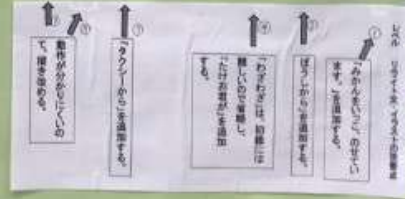 レベル　リライト文、イラストの改善点
①
「みかんをいっこ、のせてい
ます。」を追加する。
②
ぼうしから」を追加する。
「わざわざ」は、初級には
難しいので省略し、
「たけお君が」を追加
する。
「タクシーから」を追加する。
動作が分かりにくいの
で、描き改める。